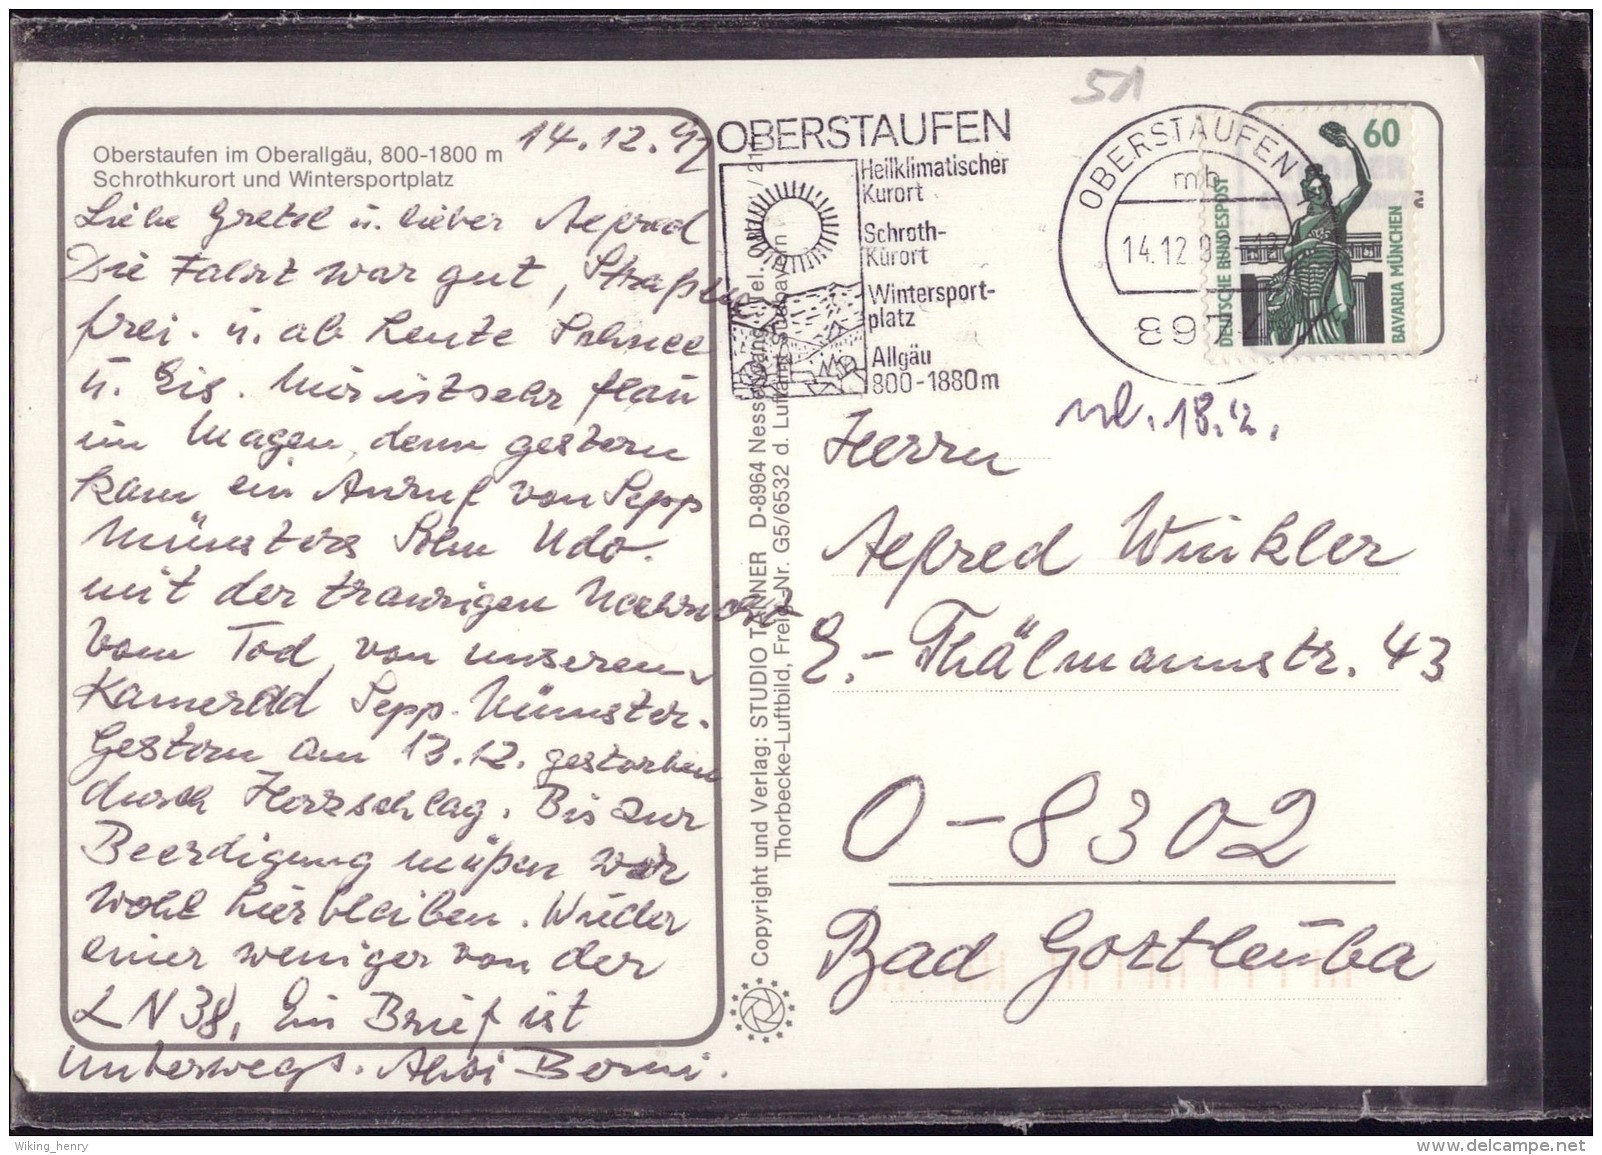 51
14.12.92
Oberstaufen im Oberallgäu, 800-1800 m
Schrothkurort und Wintersportplatz
Liebe Gretel u. lieber Alfred
Die Fahrt war gut, Straßen
frei. u. ab heute Schnee
u. Eis. Mir ist sehr flau
im Magen, denn gestern
kam ein Anruf von Sepp
Münsters Sohn Udo.
mit der traurigen Nachricht
vom Tod, von unseren
Kamerad Sepp Münster.
Gestern am 13.12. gestorben
durch Herzschlag. Bis zur
Beerdigung müßen wir
wohl hierbleiben. Wieder
einer weniger von der
LN38, Ein Brief ist
unterwegs. Berni.
Copyright und Verlag: STUDIO TANNER D-8964 Nesselwang, Tel.
Thorbecke-Luftbild, Freig.-Nr. G5/6532 d. Luftamt Südbayern
OBERSTAUFEN
Heilklimatischer
Kurort
Schroth-
Kurort
Wintersport-
platz
Allgäu
800-1880m
OBERSTAUFEN
mb
14.12.9 -12
897
60
DEUTSCHE BUNDESPOST
BAVARIA MÜNCHEN
18.12.
Herrn
Alfred Winkler
E.-Thälmannstr. 43
O-8302
Bad Gottleuba
Wiking_henry
www.delcampe.net